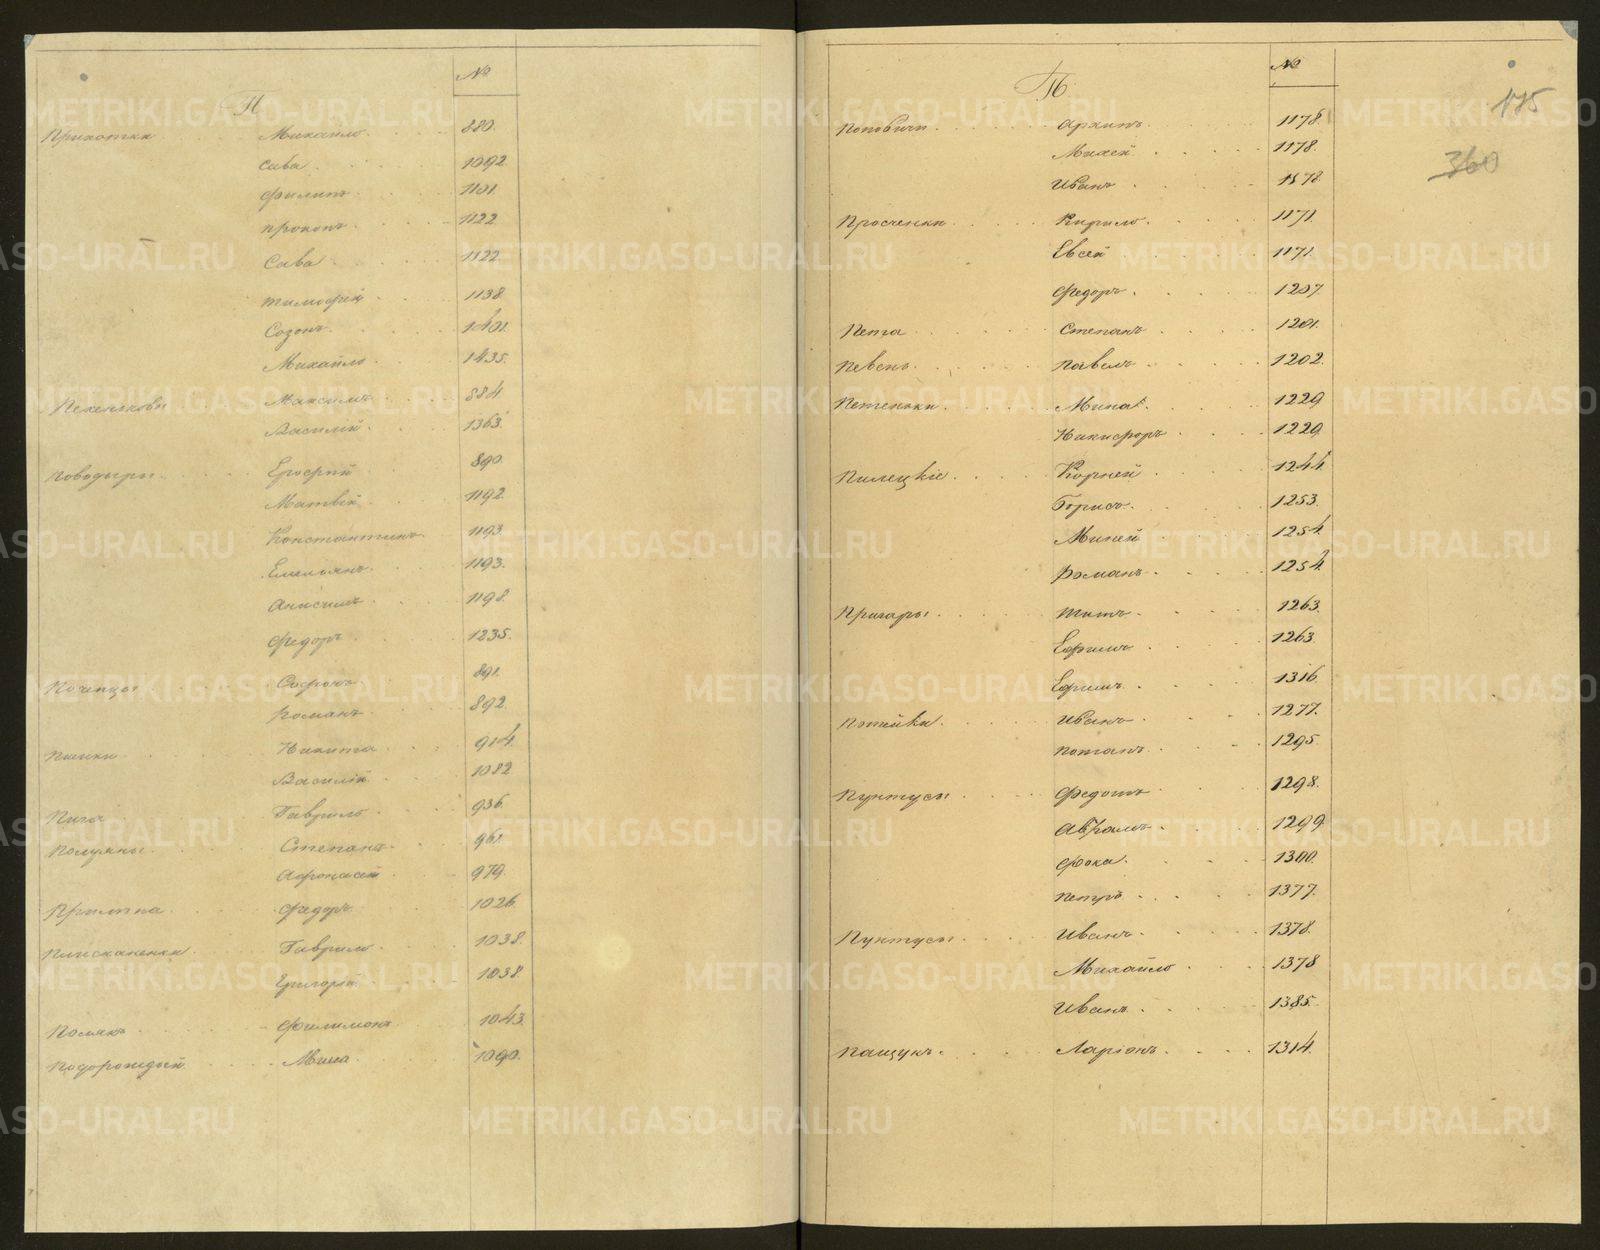 П №
Прихотки Михайло 880.
Сава 1092
Филипъ 1101
Прокопъ 1122
Сава 1122
Тимофій 1138
Созонъ 1401.
Михайло 1435.
Максимъ 884
Василій 1363.
Поводыры Ерофій 890.
Матвій 1192.
Константинъ 1193.
Емельянъ 1193.
Анисимъ 1198.
Федоръ 1235.
Починцы Софронъ 891.
Романъ 892.
Пшики Никита 914
Василій 1082
Пига Гаврило 936.
Полуяны Степанъ 961.
Афонасій 979.
Федоръ 1026.
Плисканенки Гаврило 1038.
Григорій 1038.
Полякъ Филимонъ 1043.
Подорожній Мина 1090.
П № 175
360
Поповичи Архипъ 1178.
Михей 1178.
Иванъ 1178.
Просченки Кирило 1171.
Евсей 1171.
Федоръ 1207.
Пета Степанъ 1201.
Певень Павелъ 1202.
Петеньки Мина 1229
Никифоръ 1229.
Пилецкіе Корней 1244.
Борисъ 1253.
Миней 1254.
Романъ 1254.
Пригары Титъ 1263.
Ефимъ 1263.
Ефимъ 1316.
Потейки Иванъ 1277.
Потапъ 1295.
Пунтусы Федотъ 1298.
Аврамъ 1299.
Фока 1300.
Петръ 1377.
Пунтусы Иванъ 1378.
Михайло 1378
Иванъ 1385.
Пащукъ Ларіонъ 1314.
METRIKI.GASO-URAL.RU